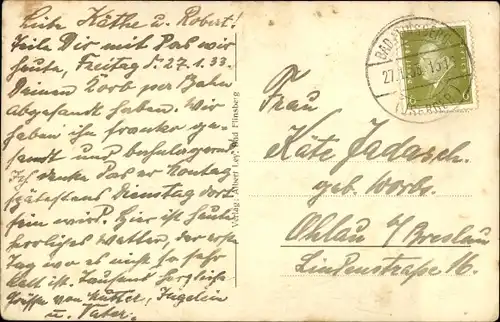 Liebe Käthe u. Robert!
Teile Dir mit das wir
heute, Freitag d. 27.1.33.
Deinen Korb per Bahn
abgesandt haben. Wir
haben ihn franko ge-
sandt und
Ich denke das er Montag
spätestens Dienstag dort
sein wird. Hier ist heute
herrliches Wetter, der erste
Tag wo es nicht so sehr
kalt ist. Tausend herzliche
Grüße von Mutter,
u. Vater.
Verlag: Albert Ley, Bad Flinsberg
BAD FLINSBERG
27.1.33.
Frau
Käte Jadasch.
geb. Worbs.
Ohlau b/ Breslau
Lindenstraße 16.